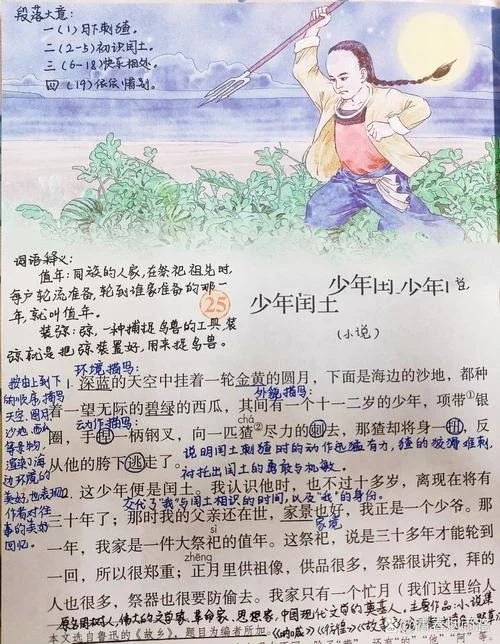 段落大意：
一（1）月下刺猹。
二（2-5）初识闰土。
三（6-18）快乐相处。
四（19）依依惜别。
词语释义：
值年：同族的人家，在祭祀祖先时，
每户轮流准备，轮到谁家准备的那一
年，就叫值年。
装弶：弶，一种捕捉鸟兽的工具，装
弶就是把弶装置好，用来捉鸟兽。
25
少年闰土
少年闰土
（小说）
按由上到下
的顺序，描写
天空、圆月
沙地、西瓜
等景物，
渲染了海
边环境的
美好，也表现
作者对往
事的美好
回忆。
环境描写：
1.深蓝的天空中挂着一轮金黄的圆月，下面是海边的沙地，都种
外貌描写：
着一望无际的碧绿的西瓜，其间有一个十一二岁的少年，项带①银
动作描写：
chá
圈，手捏一柄钢叉，向一匹猹②尽力的刺去，那猹却将身一扭，反
说明闰土刺猹时的动作迅猛有力，猹的狡猾难刺，
从他的胯下逃走了。
衬托出闰土的勇敢与机敏。
2.这少年便是闰土。我认识他时，也不过十多岁，离现在将有
交代了“我”与闰土相识的时间，以及“我”的身份。
三十年了；那时我的父亲还在世，家景也好，我正是一个少爷。那
家境
sì
一年，我家是一件大祭祀的值年。这祭祀，说是三十多年才能轮到
zhēng
一回，所以很郑重；正月里供祖像，供品很多，祭器很讲究，拜的
人也很多，祭器也很要防偷去。我家只有一个忙月（我们这里给人
原名周树人，伟大的文学家、革命家、思想家，中国现代文学的奠基人，主要作品：小说集
本文选自鲁迅的《故乡》，题目为编者所加。
《呐喊》《彷徨》《故事新编》